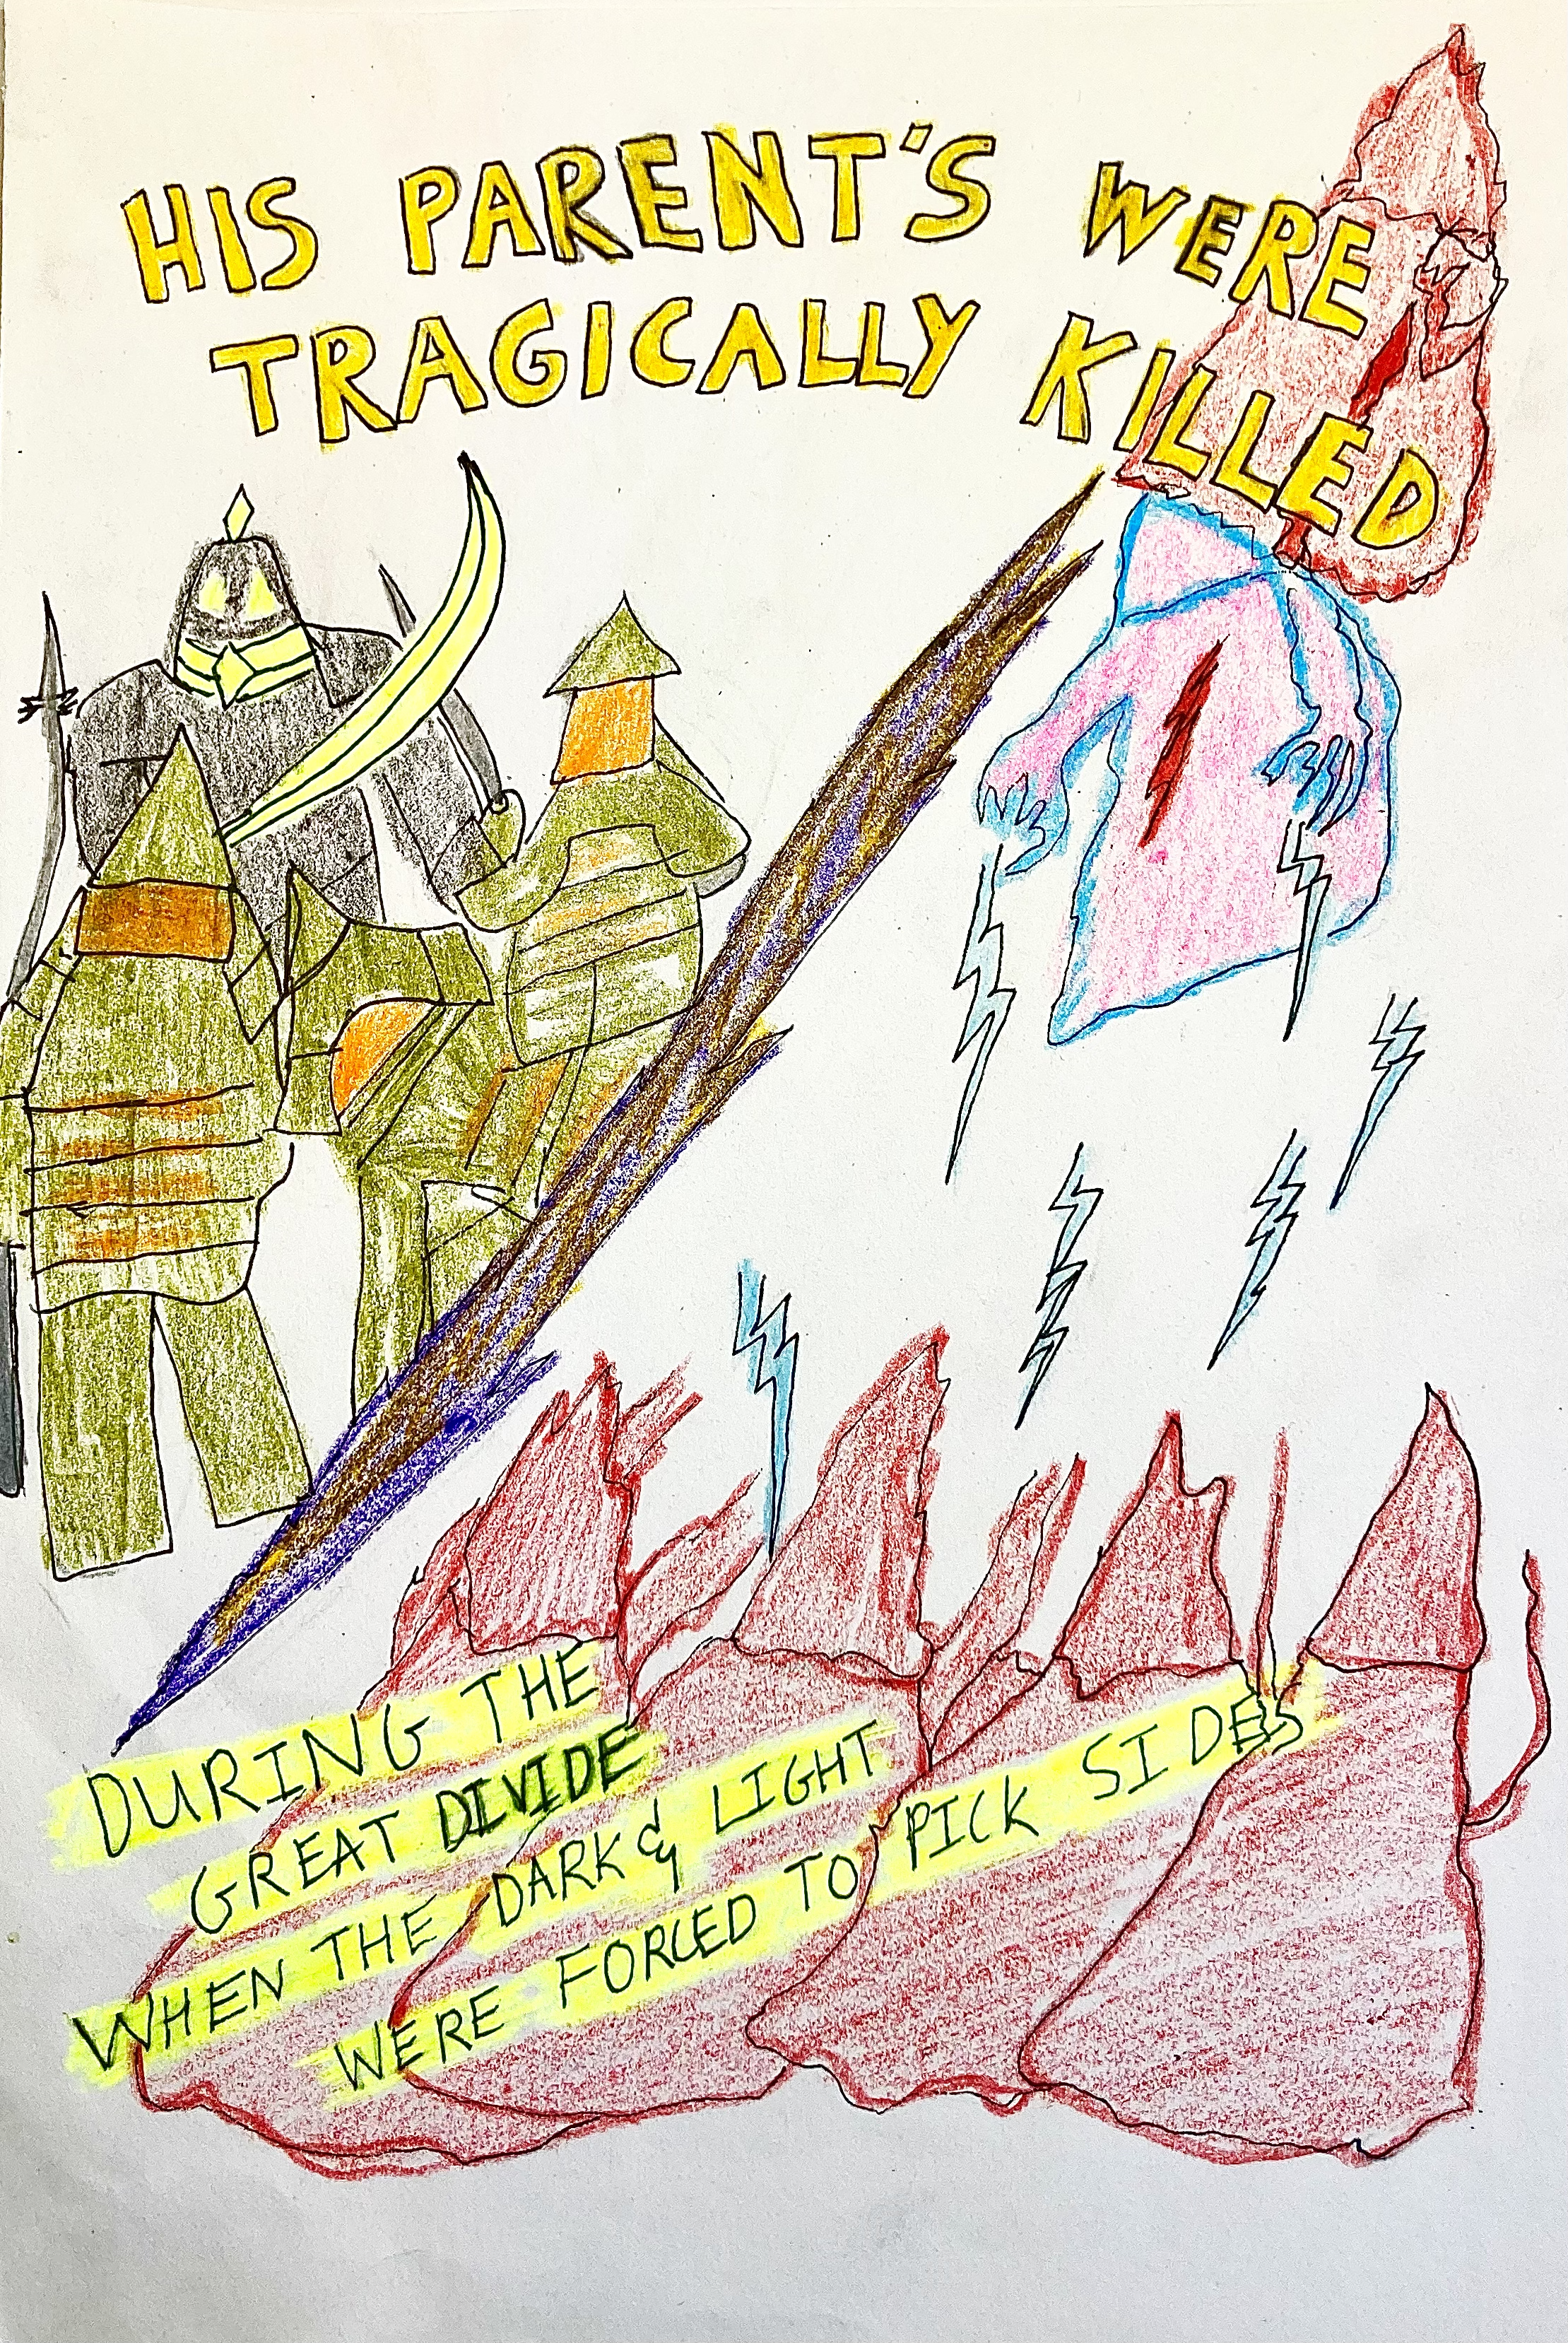 HIS PARENT'S WERE
TRAGICALLY KILLED
DURING THE
GREAT DIVIDE
WHEN THE DARK & LIGHT
WERE FORCED TO PICK SIDES